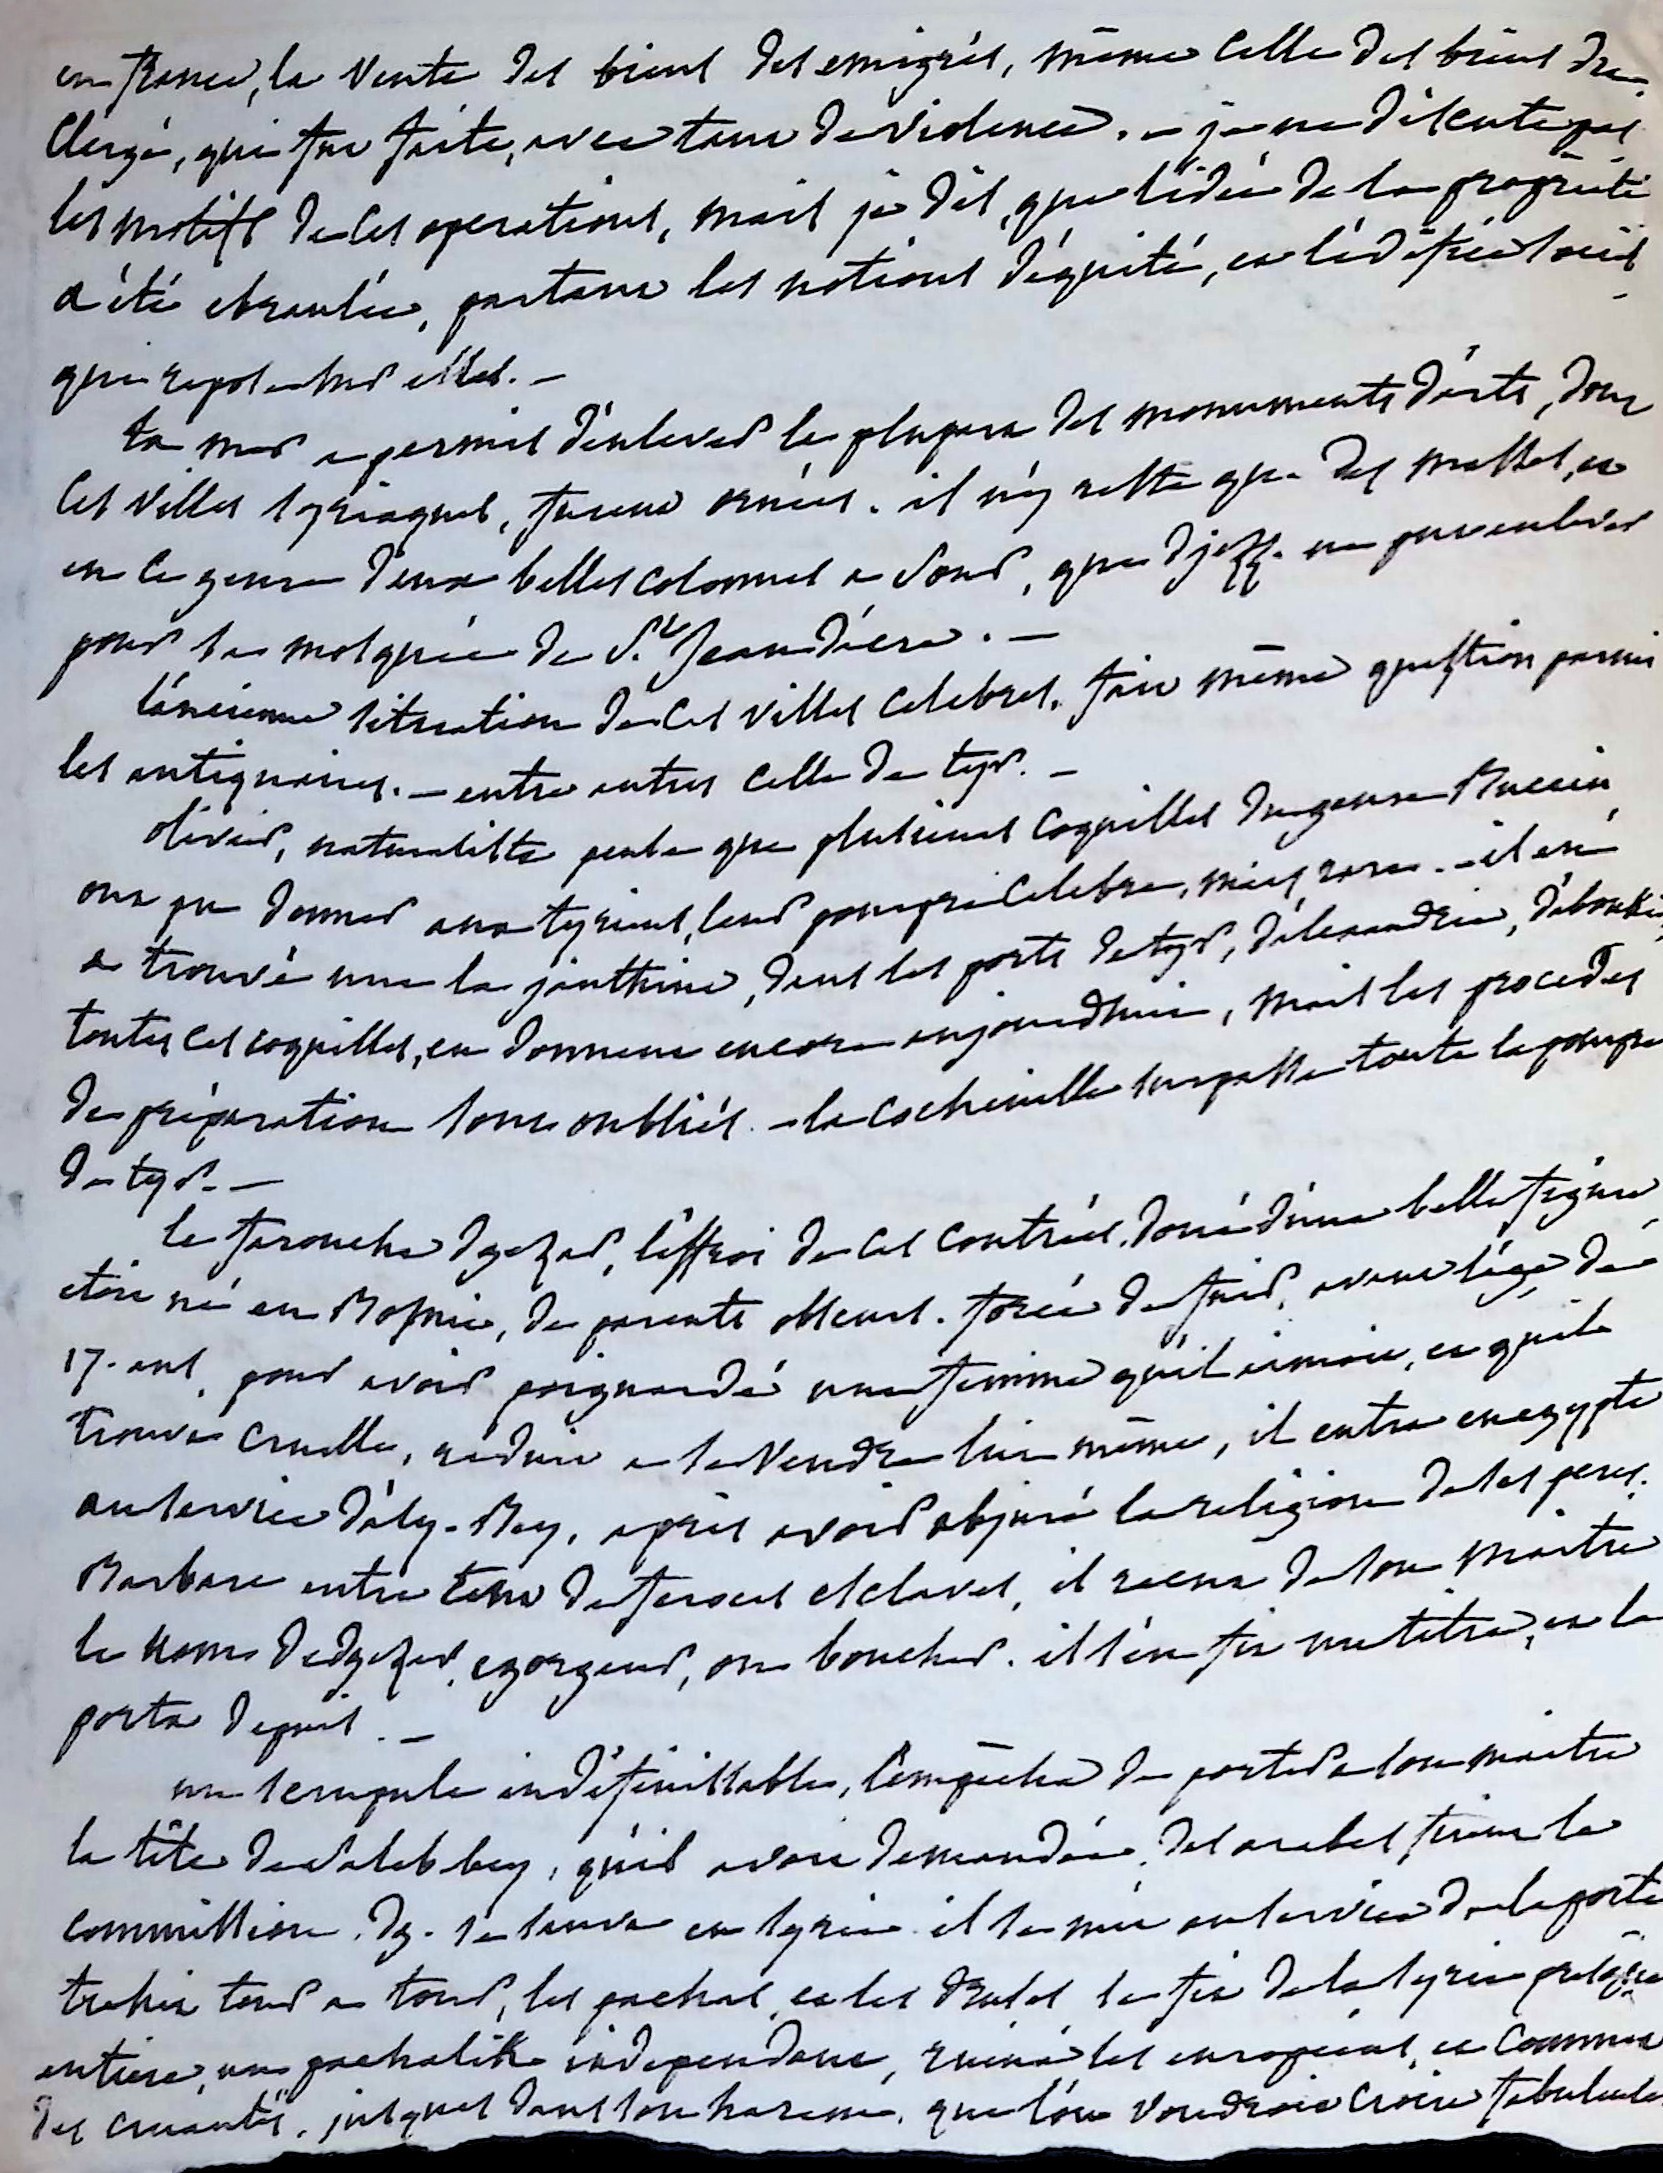 en france, la vente des biens des emigrés, même celle des biens du
Clergé, qui fut faite, avec tant de violence. - je ne discute pas
les motifs de ces operations, mais je dis, que l'idée de la proprieté
a été ebranlée, partant les notions d'équité, et l'édifice social
qui repose sur elles. -
la mer a permis d'enlever la plupart des monuments d'arts, dont
ces villes syriaques, furent ornées. il n'y reste que des masses, et
en ce genre deux belles colonnes a Sour, que Djezz. ne put enlever
pour sa mosquée de St Jean d'acre. -
l'ancienne situation de ces villes celebres. fait même question parmi
les antiquaires. - entre autres celle de tyr. -
olivier, naturaliste pense que plusieurs coquilles du genre Buccin
ont pu donner aux tyriens, leur pourpre celebre, mais rare. - il en
a trouvé une la janthine, dans les ports de tyr, d'alexandrie, d'aboukir,
toutes ces coquilles, en donnent encore aujourdhui, mais les procedés
de préparation sont oubliés. - la cochenille surpasse toute la pourpre
de tyr. -
le farouche Dgezar, l'effroi de ces contrées. doué d'une belle figure
etoit né en Bosnie, de parents obscurs. forcé de fuir, avant l'âge de
17. ans, pour avoir poignardé une femme qu'il aimoit, et qu'il
trouva cruelle, réduit a se vendre lui même, il entra en egypte
au service d'aly-Bey, après avoir abjuré la religion de ses peres.
Barbare entre tant de feroces esclaves, il recut de son maitre
le nom de dgezar, egorgeur, ou boucher. il s'en fit un titre, et le
porta depuis. -
un scrupule indéfinissable, l'empêcha de porter a son maitre
la tête de saleb bey, qu'il avoit demandée, des arabes firent la
commission. Dg. se sauva en syrie. il se mit au service de la porte
trahit tour a tour, les pachas, et les druses se fit de la syrie presque
entiere, un pachalik independant, ruina les européens, et commit
des cruautés, jusques dans son harem, que l'on voudroit croire fabuleuses